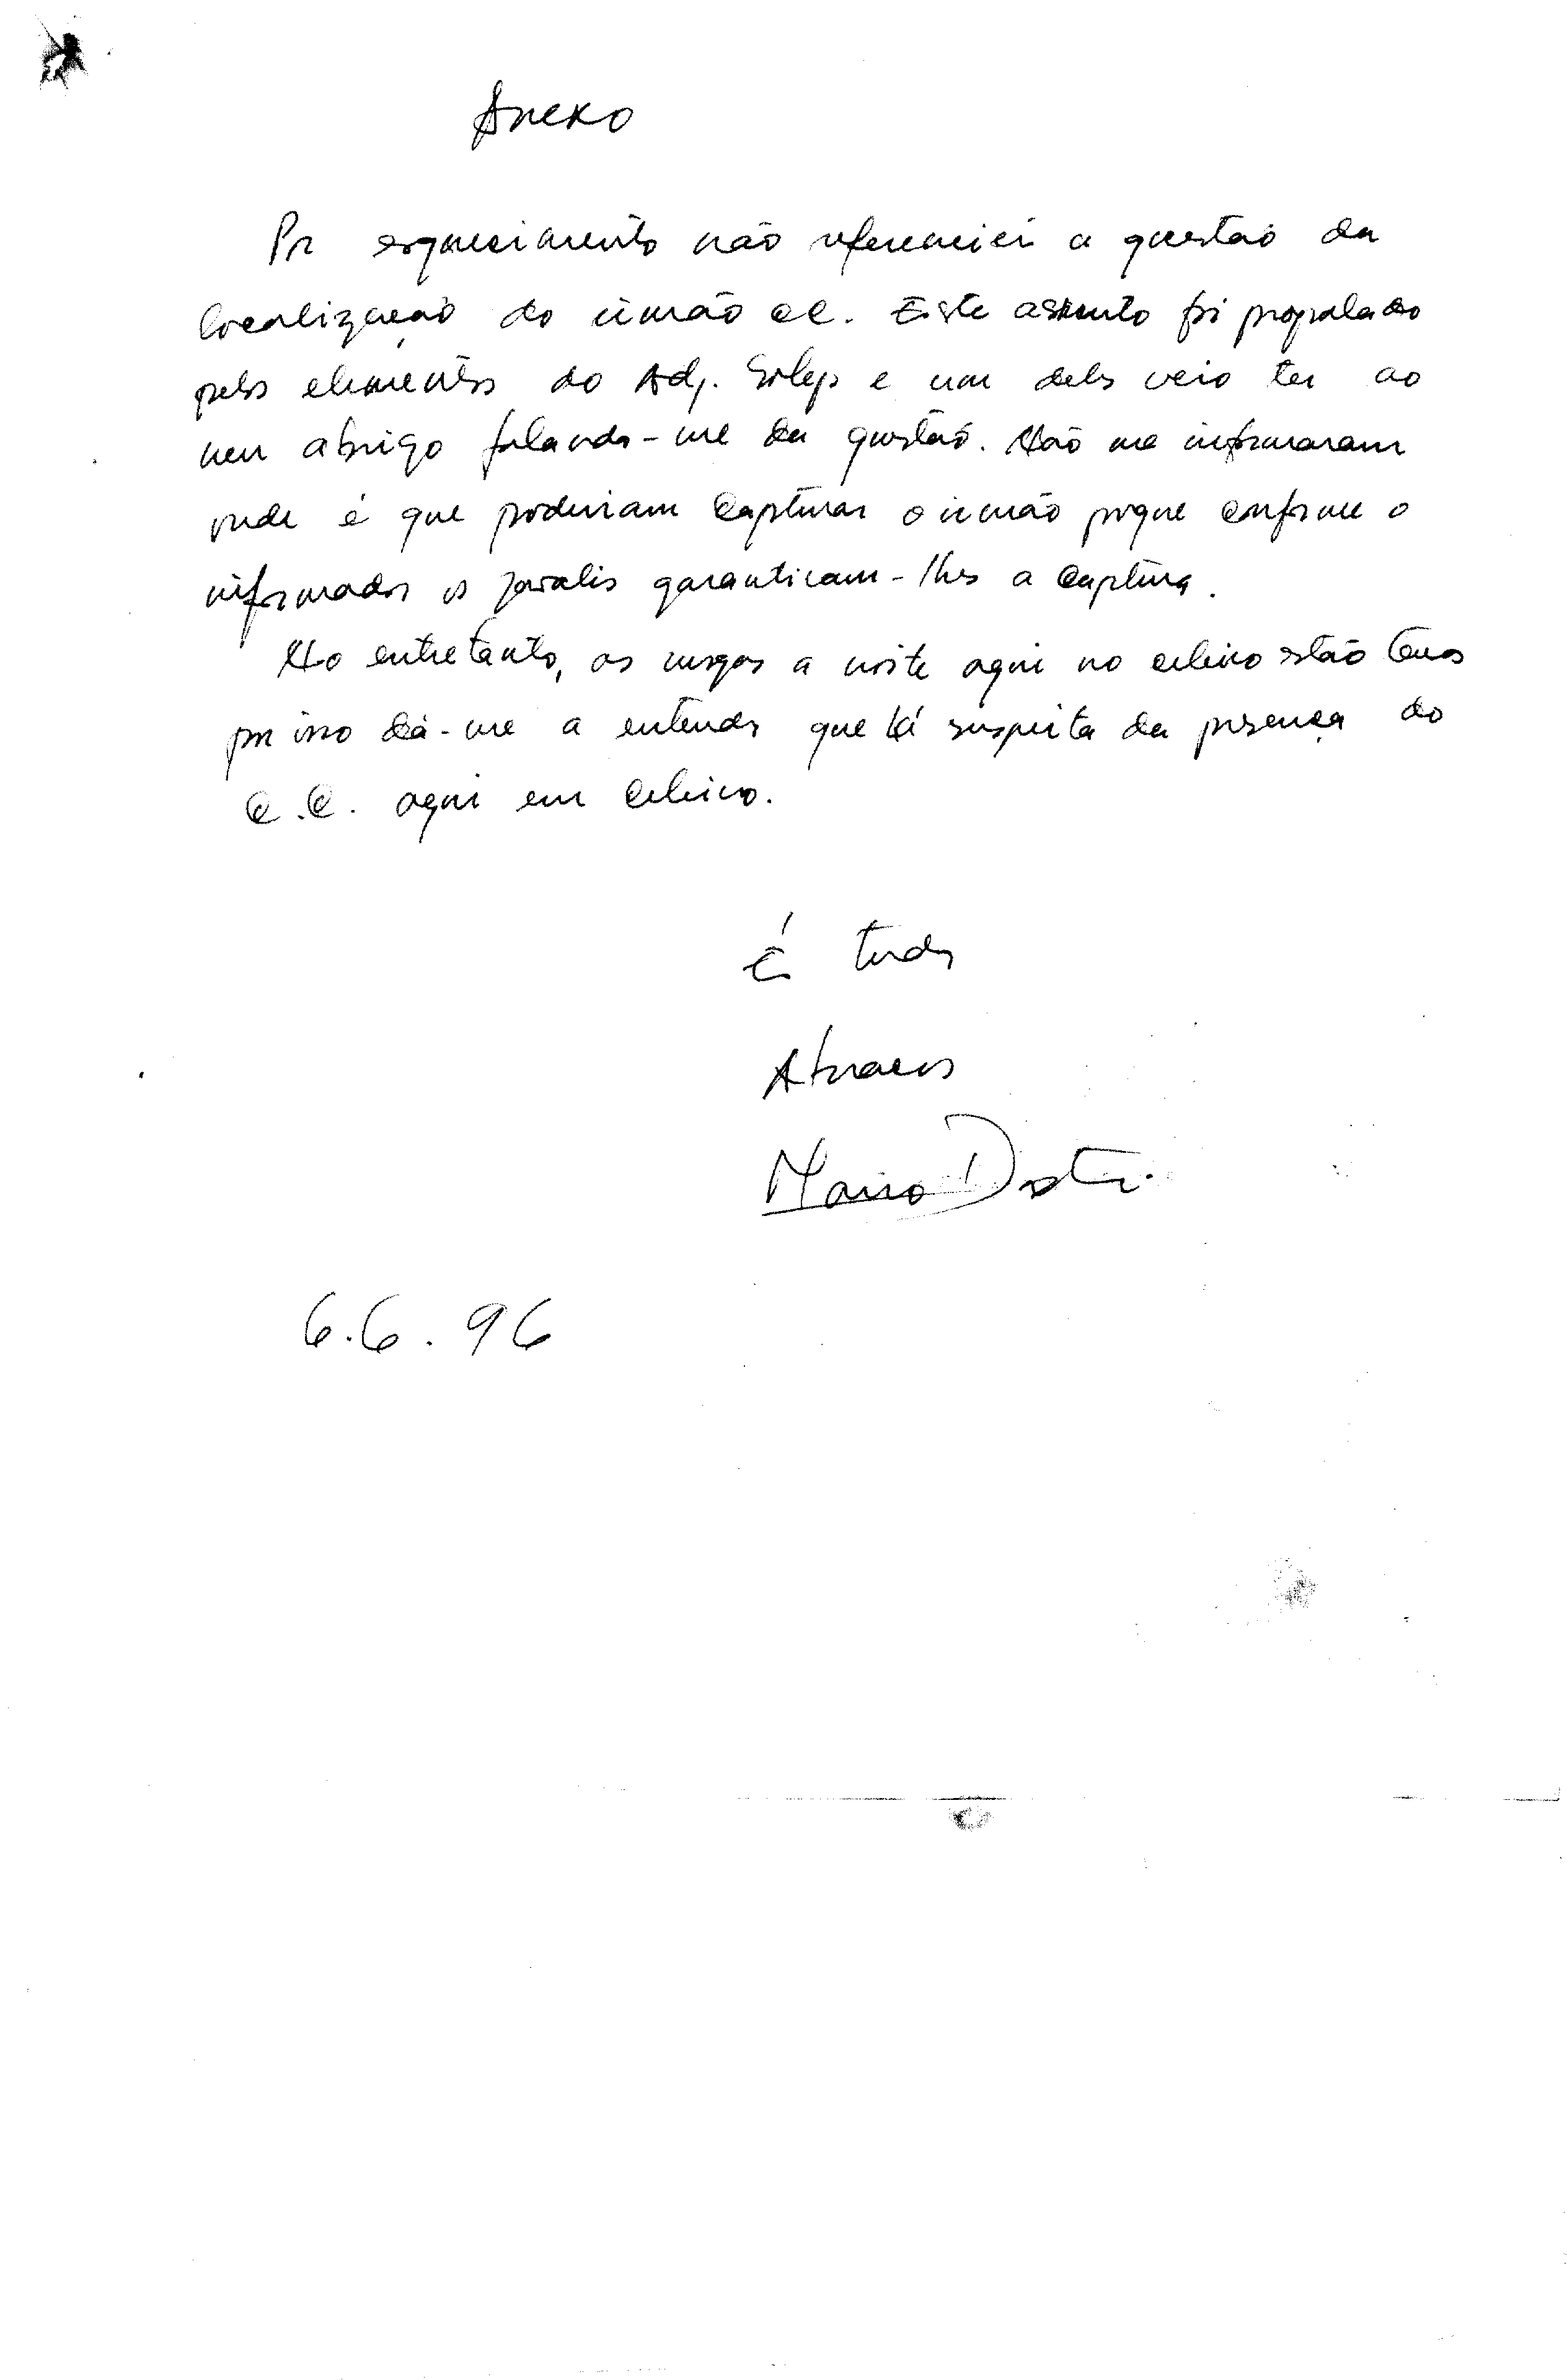 Anexo
Por esquecimento não referenciei a questão da
localização do irmão CC. Este assunto foi propalado
pelos elementos do Adj. e um deles veio ter ao
meu abrigo falando-me da questão. Não me informaram
onde é que poderiam capturar o irmão porque conforme o
informador os javalis garantiram-lhes a captura.
No entretanto, as rusgas a noite aqui no estão
por isso dá-me a entender que há suspeita da presença do
C.C. aqui em
É tudo
Abraços
Mário
6.6.96